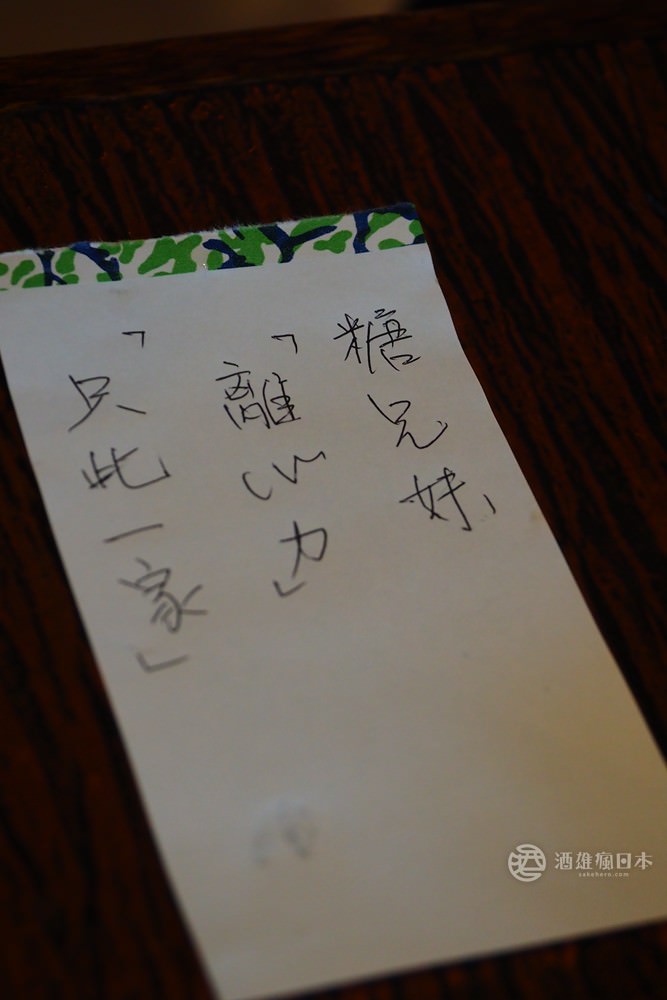 糖兄妹、
「離心力」
「只此一家」
酒雄瘋日本
sakehero.com